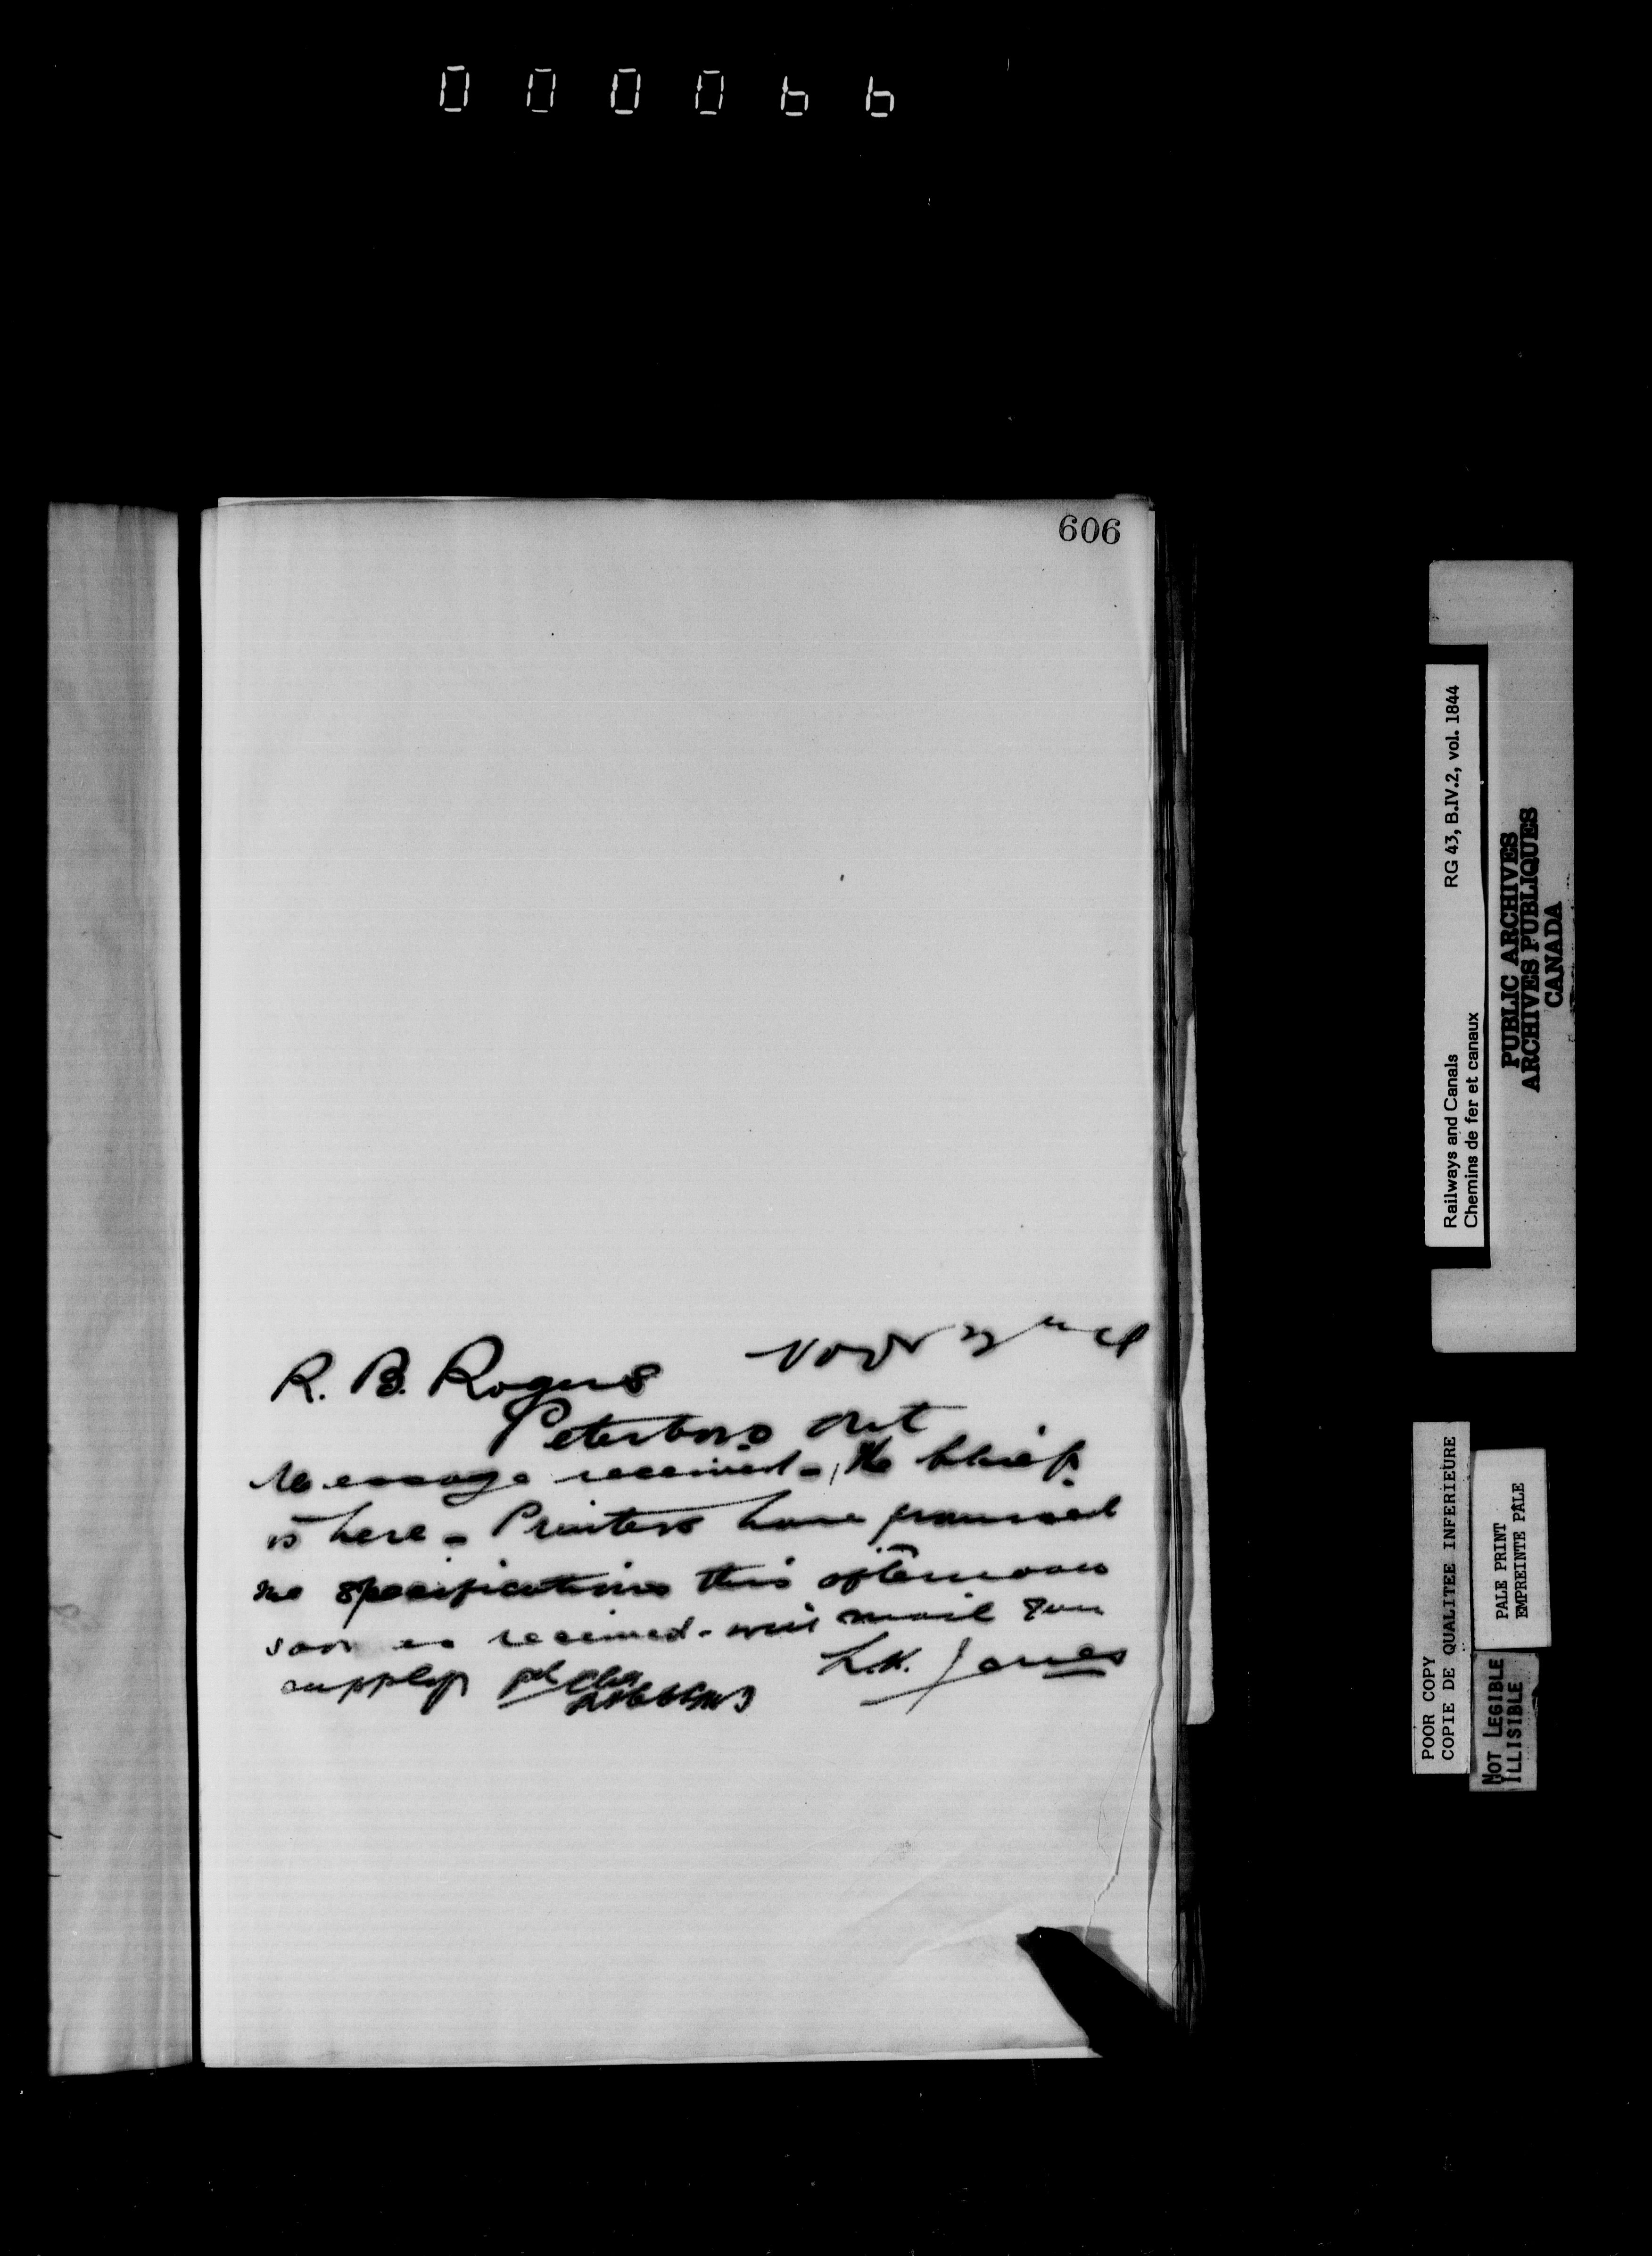 000066
606
R. B. Rogers
Peterboro Ont
Message received - The Chief
is here - Printers have promised
me specifications this afternoon
soon as received - will mail you
supply
L.K. Jones
Railways and Canals RG 43, B.IV.2, vol. 1844
Chemins de fer et canaux
PUBLIC ARCHIVES
ARCHIVES PUBLIQUES
CANADA
POOR COPY
COPIE DE QUALITEE INFERIEURE
PALE PRINT
EMPREINTE PÂLE
NOT LEGIBLE
ILLISIBLE